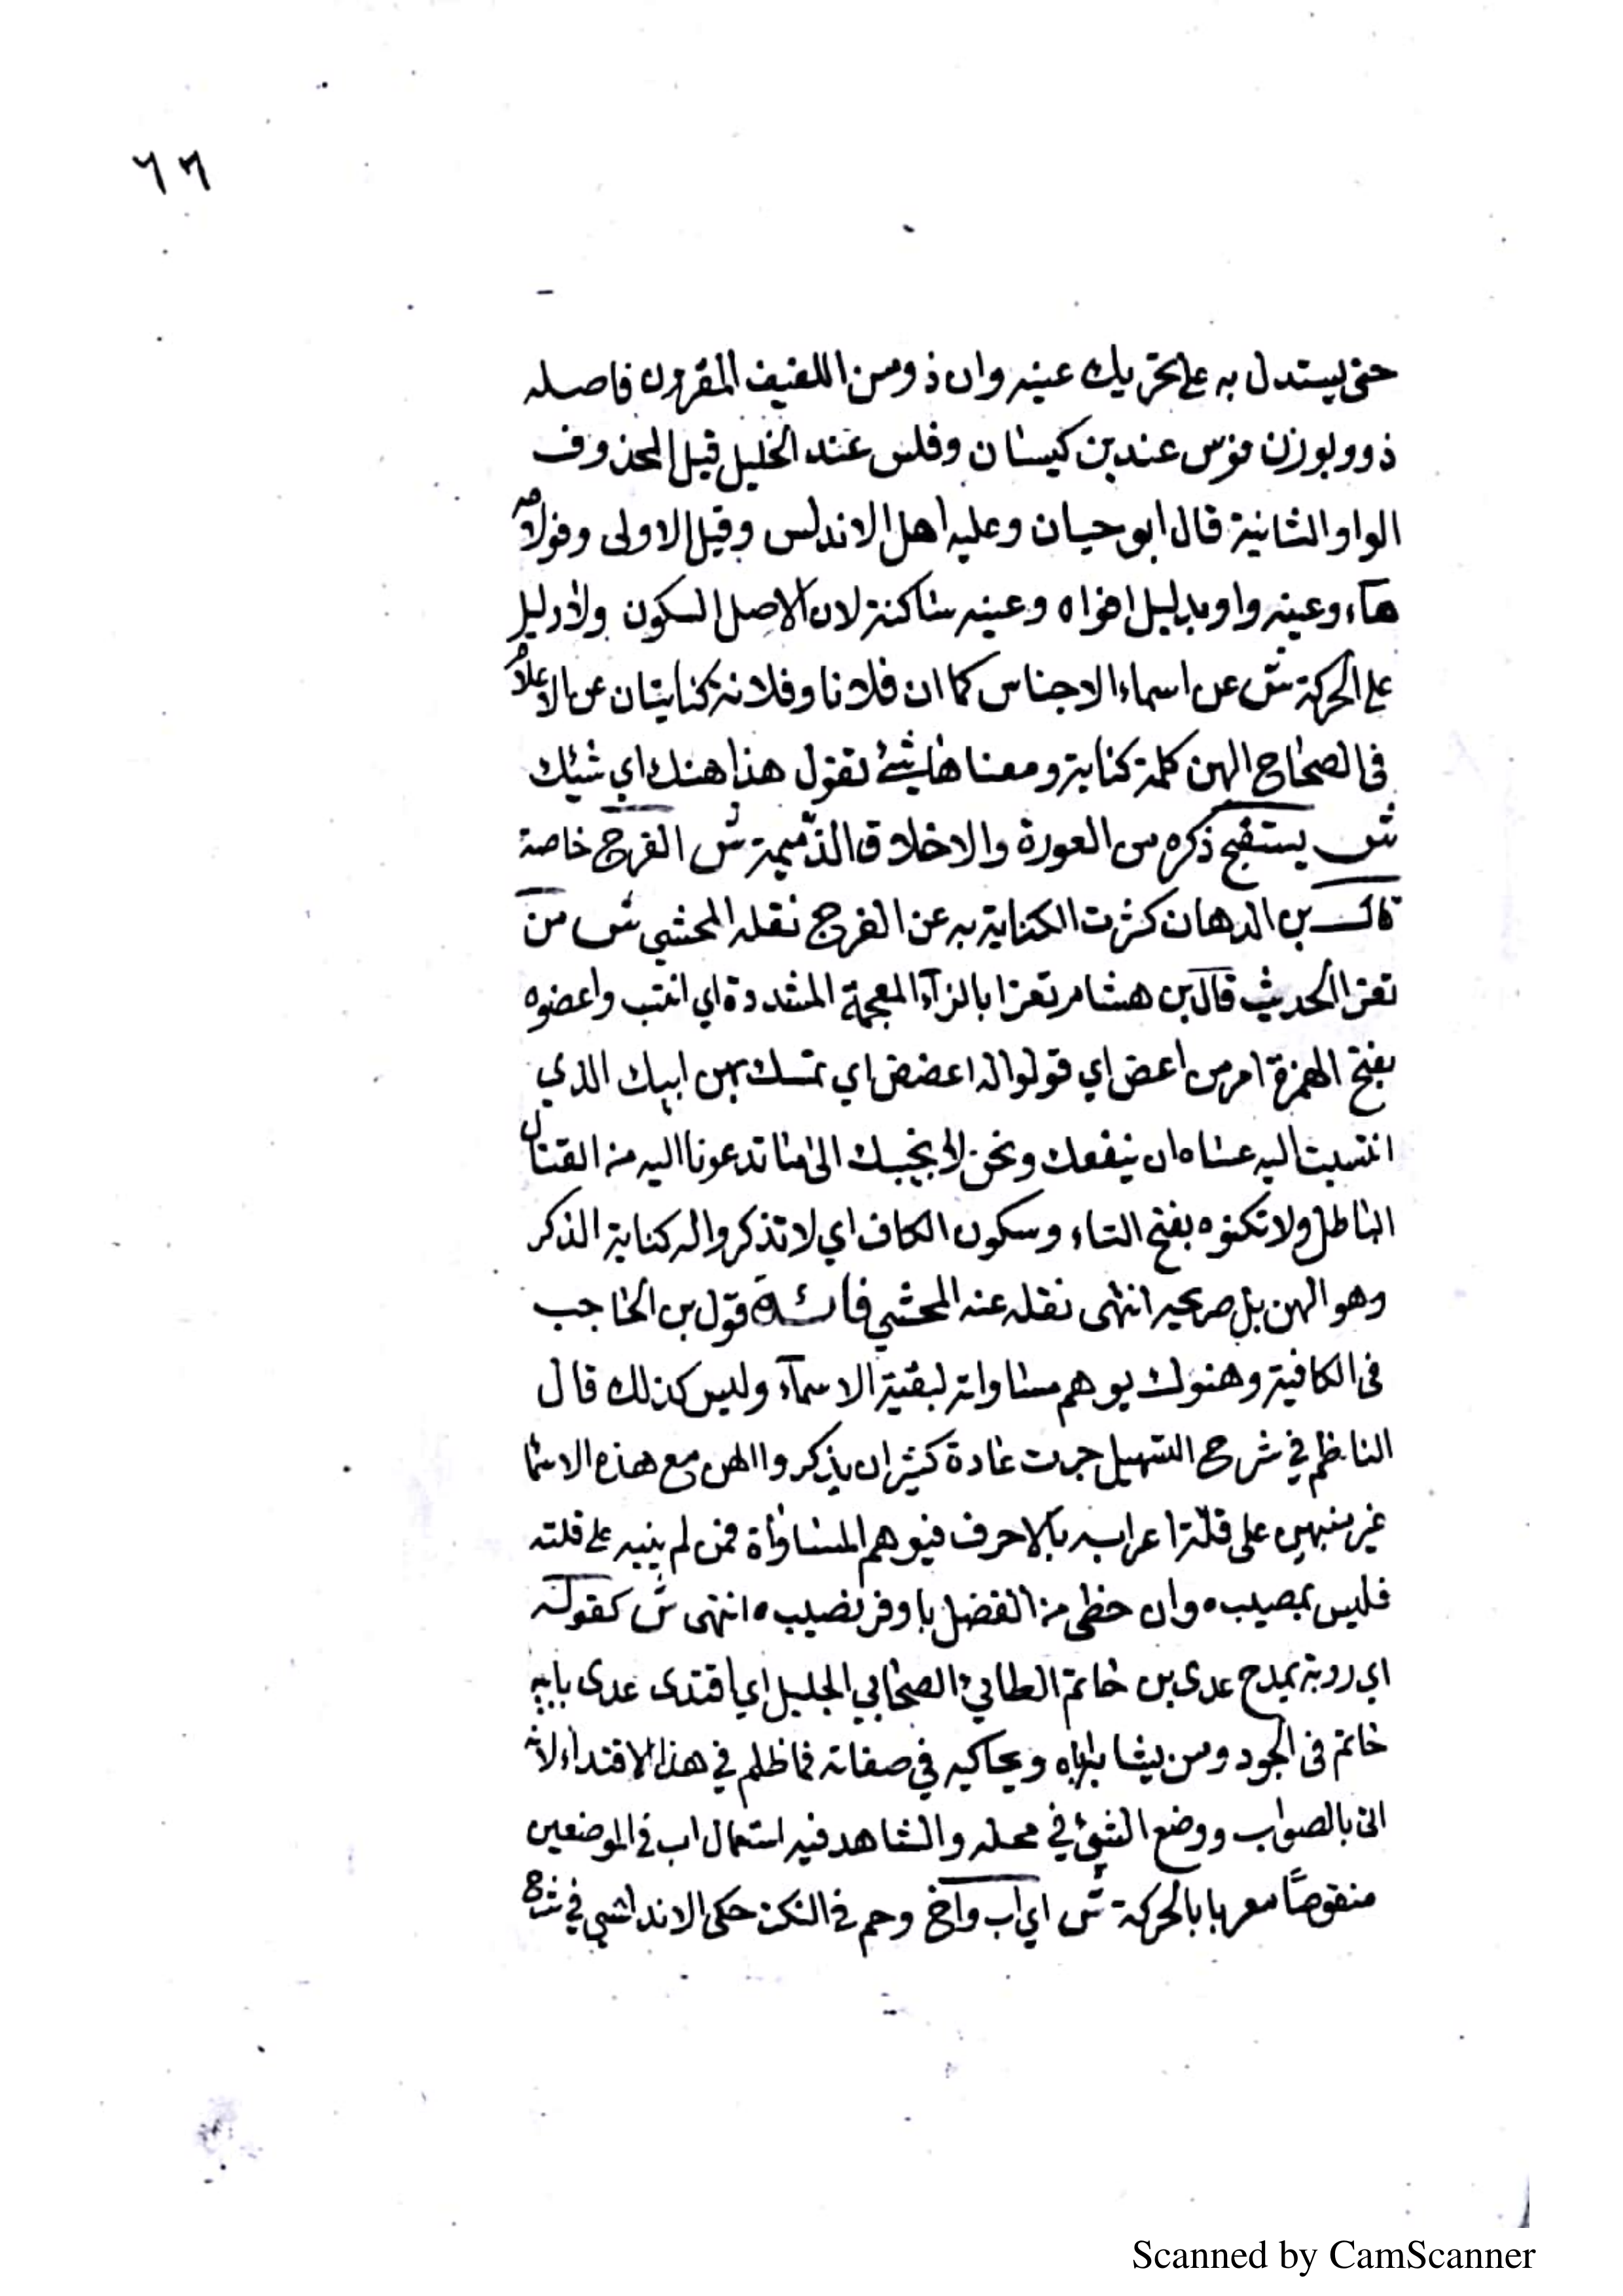 ٦٦
حتى يستدل به على تحريك عينه وان ذو من اللفيف المقرون فاصله
ذوو بوزن فرس عند بن كيسان وفلس عند الخليل قيل المحذوف
الواو الثانية قال ابو حيان وعليه اهل الاندلس وقيل الاولى وفو لامه
هآء وعينه واو بدليل افواه وعينه ساكنة لان الاصل السكون ولا دليل
على الحركة ش عن اسماء الاجناس كما ان فلانا وفلانة كنايتان عن الاعلام
فى الصحاح الهن كلمة كناية ومعناها شئ تقول هذا هنك اي شيئك
ش يستقبح ذكره من العورة والاخلاق الذميمة ش الفرج خاصة
قال بن الدهان كثرت الكناية به عن الفرج نقله المحشي ش من
تعزا الحديث قال بن هشام تعزا بالزآء المعجمة المشددة اي انتسب واعضوه
بفتح الهمزة امر من اعض اي قولوا له اعضض اي تمسك بهن ابيك الذي
انتسبت اليه عساه ان ينفعك ونحن لا نجيبك الى ما تدعونا اليه من القتال
الباطل ولا تكنوه بفتح التاء وسكون الكاف اي لا تذكروا له كناية الذكر
وهو الهن بل صريحه انتهى نقله عنه المحشي فائدة قول بن الحاجب
فى الكافية وهنوك يوهم مساواته لبقية الاسمآء وليس كذلك قال
الناظم في شرح التسهيل جرت عادة كثير ان يذكروا الهن مع هذه الاسما
غير منبهين على قلّة اعرابه بالاحرف فيوهم المساواة فمن لم ينبه على قلته
فليس بمصيب ٥ وان حظى من الفضل باوفر نصيب ٥ انتهى ش كقوله
اي روبة يمدح عدى بن حاتم الطائي الصحابي الجليل اي اقتدى عدى بابيه
حاتم فى الجود ومن يشابه اباه ويحاكيه في صفاته فما ظلم في هذا الاقتداء لانه
اتى بالصواب ووضع الشئ في محله والشاهد فيه استعمال اب في الموضعين
منقوصًا معربا بالحركة ش اي اب واخ وحم في النكن حكى الاندلسي في شرح
Scanned by CamScanner